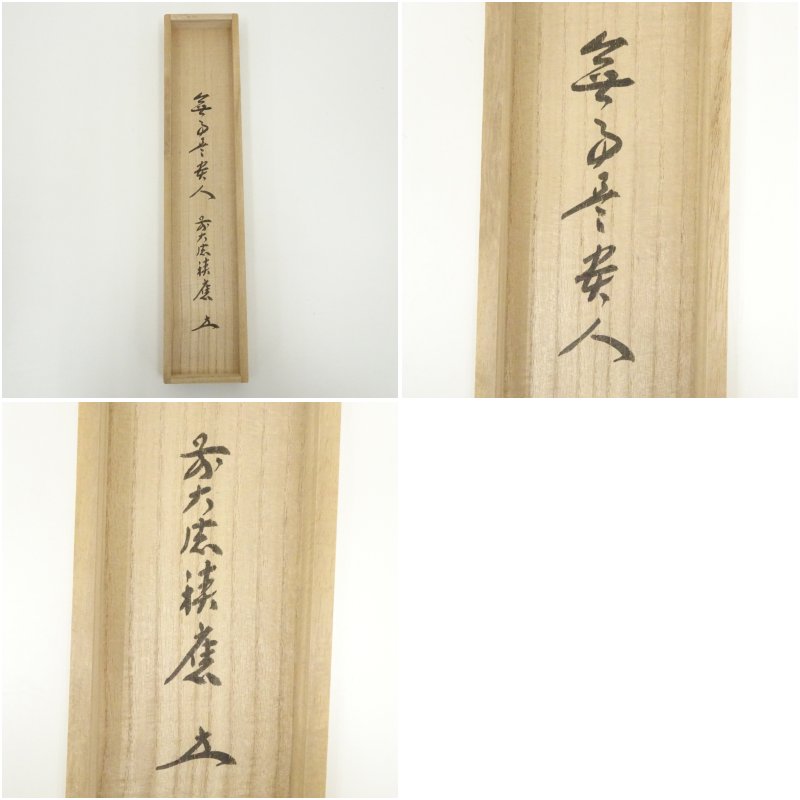 無事是貴人 前大徳積應
無事是貴人
前大徳積應